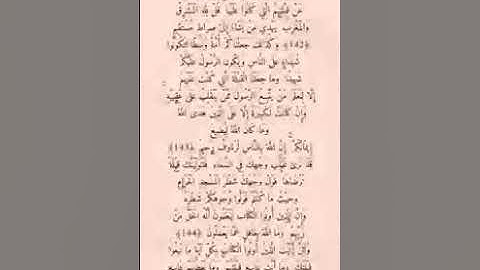 عَنْ قِبْلَتِهِمُ الَّتِي كَانُوا عَلَيْهَا قُلْ لِلَّهِ الْمَشْرِقُ
وَالْمَغْرِبُ يَهْدِي مَنْ يَشَاءُ إِلَى صِرَاطٍ مُسْتَقِيمٍ
﴿142﴾ وَكَذَلِكَ جَعَلْنَاكُمْ أُمَّةً وَسَطًا لِتَكُونُوا
شُهَدَاءَ عَلَى النَّاسِ وَيَكُونَ الرَّسُولُ عَلَيْكُمْ
شَهِيدًا وَمَا جَعَلْنَا الْقِبْلَةَ الَّتِي كُنْتَ عَلَيْهَا
إِلَّا لِنَعْلَمَ مَنْ يَتَّبِعُ الرَّسُولَ مِمَّنْ يَنْقَلِبُ عَلَى عَقِبَيْهِ
وَإِنْ كَانَتْ لَكَبِيرَةً إِلَّا عَلَى الَّذِينَ هَدَى اللَّهُ
وَمَا كَانَ اللَّهُ لِيُضِيعَ
إِيمَانَكُمْ إِنَّ اللَّهَ بِالنَّاسِ لَرَءُوفٌ رَحِيمٌ ﴿143﴾
قَدْ نَرَى تَقَلُّبَ وَجْهِكَ فِي السَّمَاءِ فَلَنُوَلِّيَنَّكَ قِبْلَةً
تَرْضَاهَا فَوَلِّ وَجْهَكَ شَطْرَ الْمَسْجِدِ الْحَرَامِ
وَحَيْثُ مَا كُنْتُمْ فَوَلُّوا وُجُوهَكُمْ شَطْرَهُ
وَإِنَّ الَّذِينَ أُوتُوا الْكِتَابَ لَيَعْلَمُونَ أَنَّهُ الْحَقُّ مِنْ
رَبِّهِمْ وَمَا اللَّهُ بِغَافِلٍ عَمَّا يَعْمَلُونَ ﴿144﴾
وَلَئِنْ أَتَيْتَ الَّذِينَ أُوتُوا الْكِتَابَ بِكُلِّ آيَةٍ مَا تَبِعُوا
قِبْلَتَكَ وَمَا أَنْتَ بِتَابِعٍ قِبْلَتَهُمْ وَمَا بَعْضُهُمْ بِتَابِعٍ